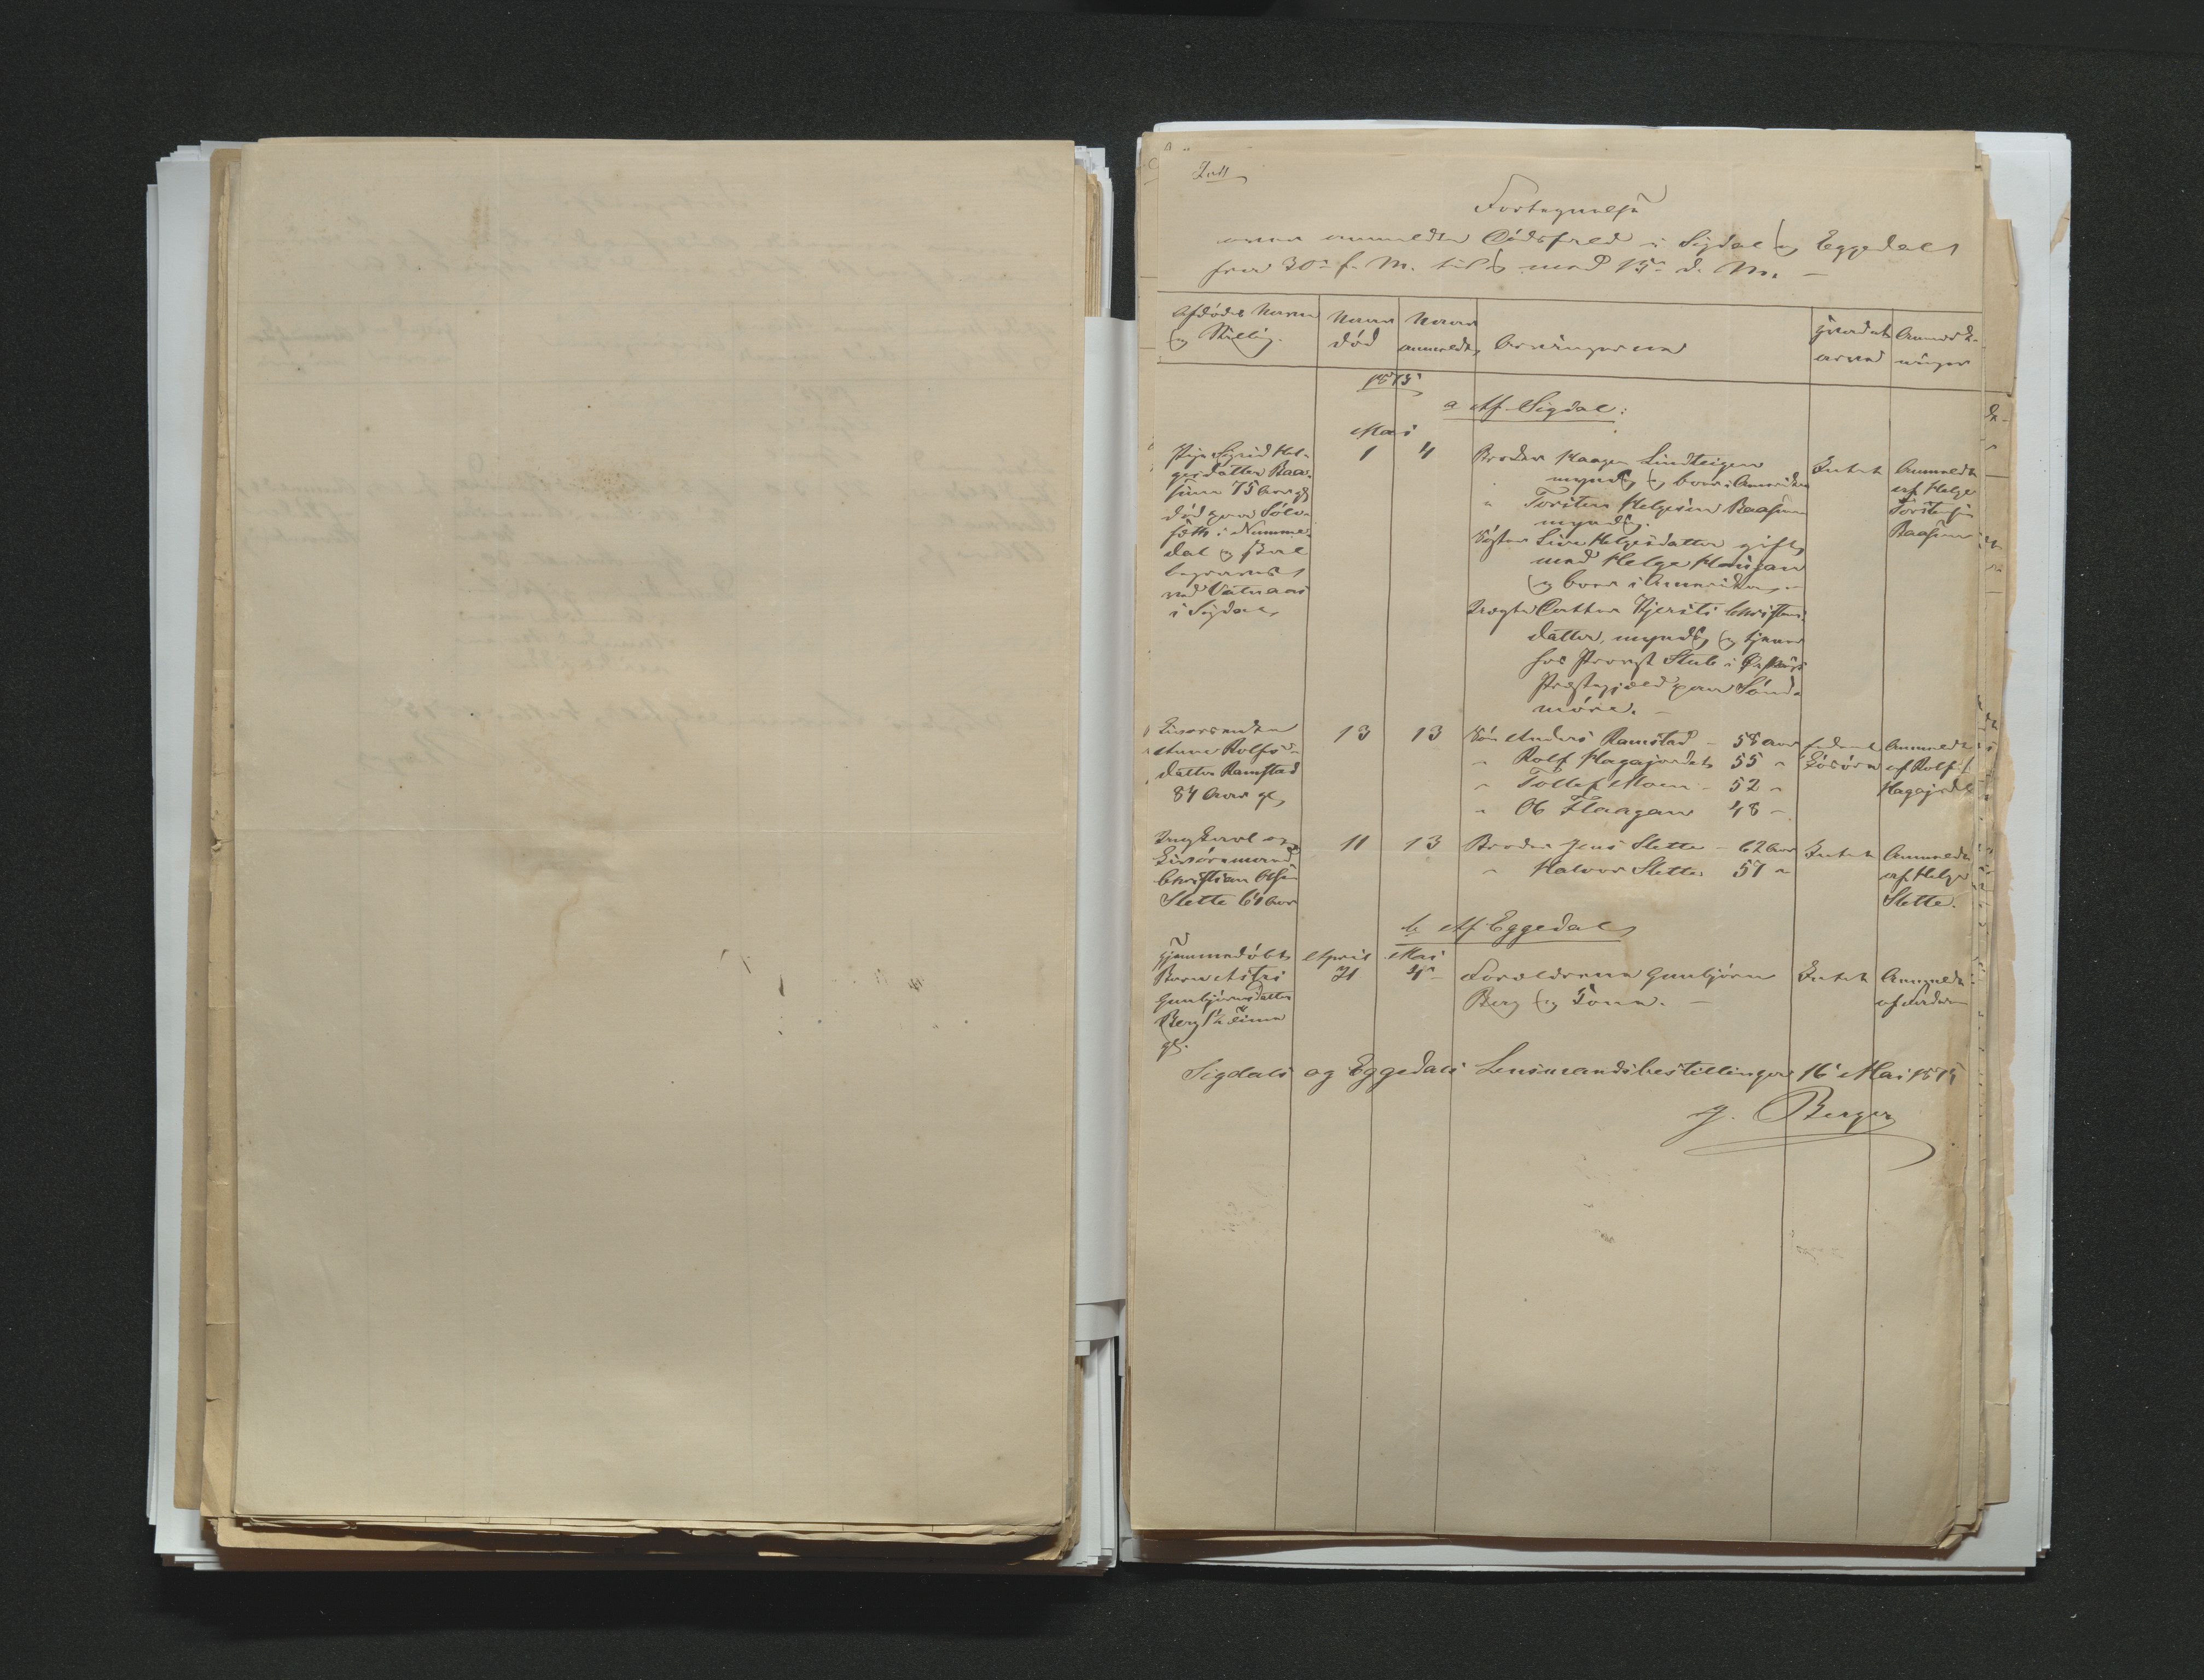 Fortegnelse
over anmeldte Dødsfald i Sigdal og Eggedal
fra 30te f. M. til og med 15de d. M. –
Afdødes Navn
og Stilling.
Naar
død
Naar
anmeldt
Arvingerne
Hvad at
arves
Anmærk-
ninger
1875
a Af Sigdal:
Mai
Pige Sigrid Hel-
gesdatter Baa-
suen 75 Aar gl,
død paa
i Numme-
dal og skal
begraves
ved Vatnaas
i Sigdal,
1
4
Broder Haagen Lindteigen
myndg, boer i Amerika
" Torsten Helgesen Baasuen
myndg.
Søster Live Helgesdatter gift
med Helge Hansan
og boer i Amerika, –
Datter Kjersti Christens-
datter, myndg, og tjener
hos Provst Stub i
Præstegjæld paa Sønd-
møre. –
Intet
Anmeldt
af Helge
Torstensen
Baasuen
Anne Rolfs-
datter Ramstad
84 Aar gl,
13
13
Søn Anders Ramstad – 58 Aar
" Rolf Hagajordet 55 "
" Tollef Moen – 52 "
" Ole Flaagan 48 "
Løsøre
Anmeldt
af Rolf
Hagajordet
Ungkarl og
Christian Olsen
Slette 61 Aar
11
13
Broder Jens Slette – 62 Aar
" Halvor Slette 57 "
Intet
Anmeldt
af Helge
Slette.
b Af Eggedal
Hjemmedøbt
Barn Astri
Gunbjørnsdatter
Berg 1/2 Time
gl.
April
Mai
Forældrene Gunbjørn
Berg og Kone. –
Intet
Anmeldt
af
Sigdals og Eggedals Lensmandsbestillinger 16 Mai 1875
Berger